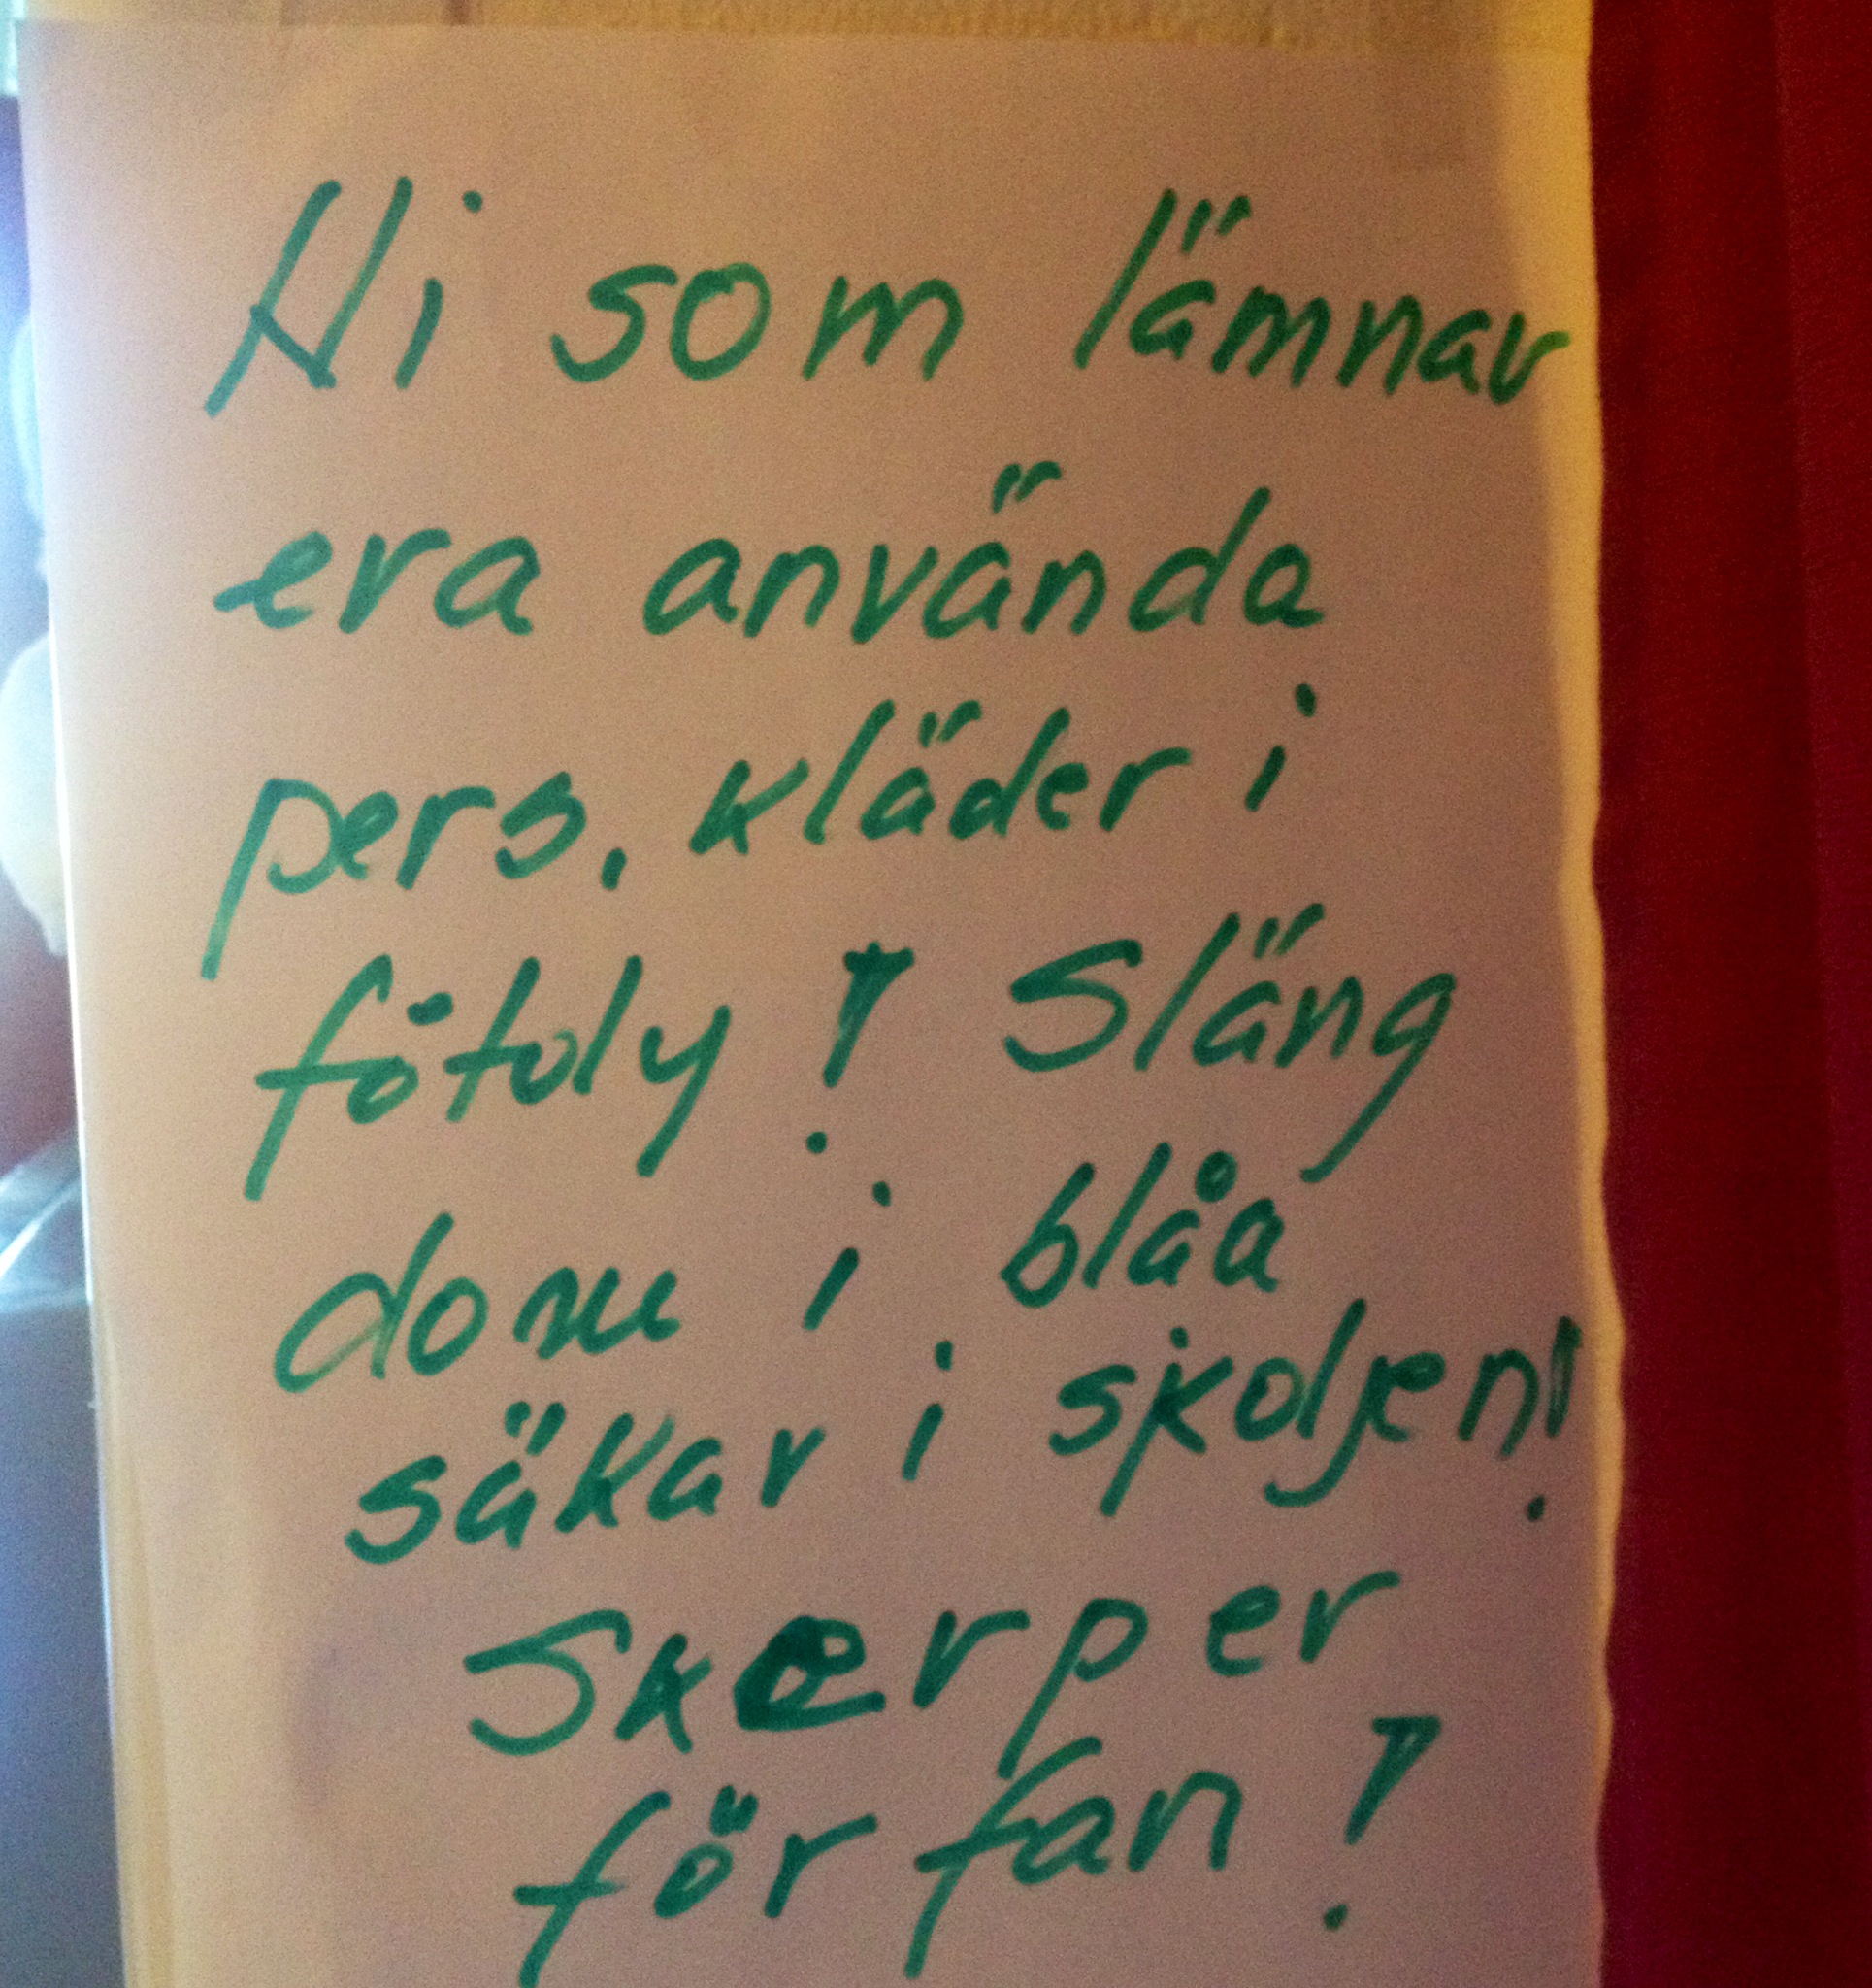 Ni som lämnar
era använda
pers. kläder i
fötoly! Släng
dom i blåa
säkar i skoljen!
Skærper
för fan!